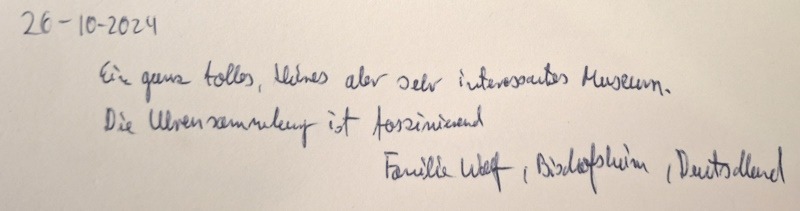 26-10-2024
Ein ganz tolles, kleines aber sehr interessantes Museum.
Die Uhrensammlung ist faszinierend
Familie Wolf, Bischofsheim, Deutschland